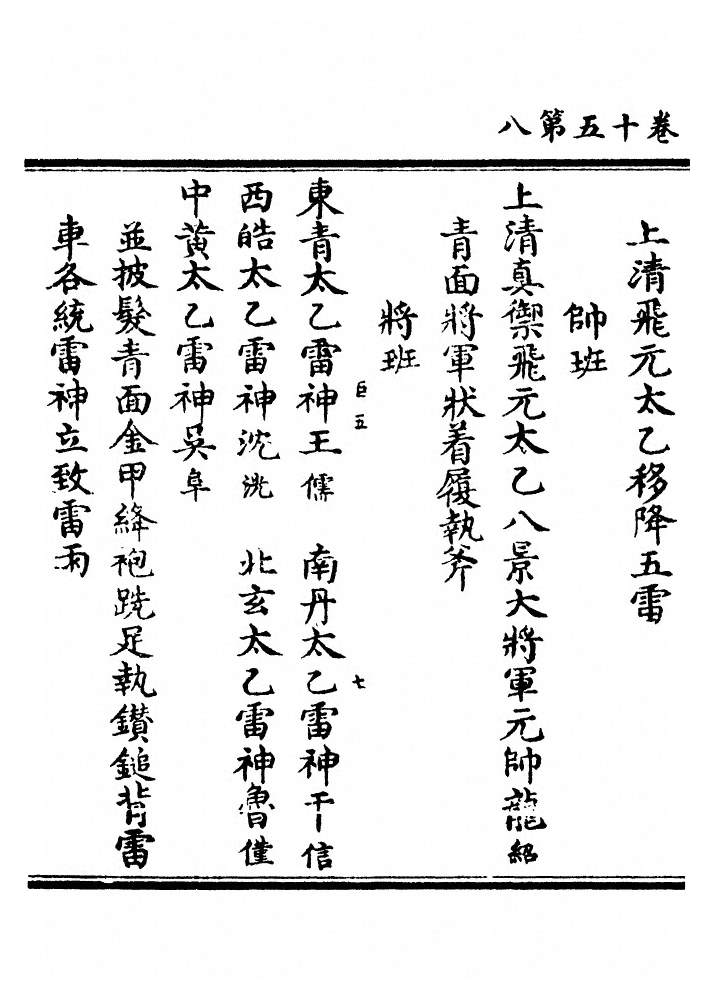 卷十五第八
上清飛元太乙移降五雷
帥班
上清真禦飛元太乙八景大將軍元帥龍紹
青面將軍狀着履執斧
將班
巨五
七
東青太乙雷神王儒 南丹太乙雷神干信
西皓太乙雷神沈洸 北玄太乙雷神魯僅
中黃太乙雷神吳阜
並披髮青面金甲絳袍跣足執鑽鎚背雷
車各統雷神立致雷雨